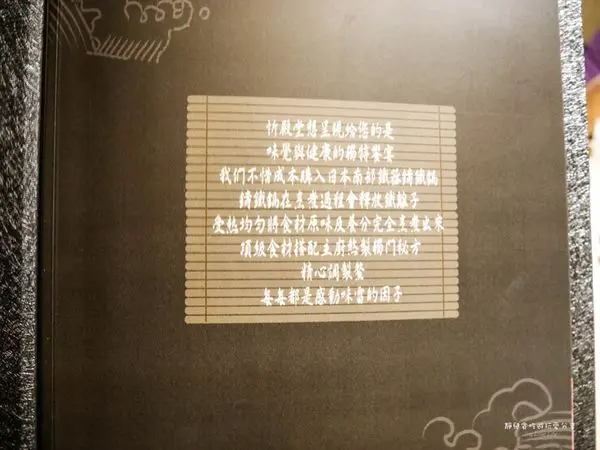 忻殿堂想呈現給您的是
味覺與健康的獨特饗宴
我們不惜成本購入日本南部鐵器鑄鐵鍋
鑄鐵鍋在烹煮過程會釋放鐵離子
受熱均勻將食材原味及養分完全烹煮出來
頂級食材搭配主廚熬製獨門秘方
精心調製
每每都是感動味蕾的因子